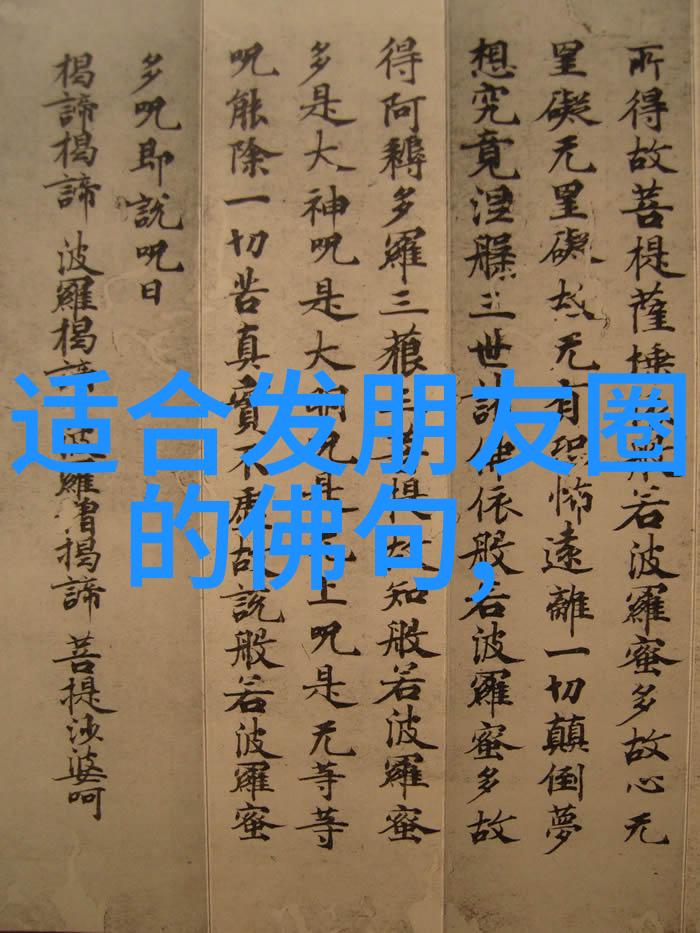 所得故菩提薩埵依般若波羅蜜多故心无
罣礙无罣礙故无有恐怖遠離一切顛倒夢
想究竟涅槃三世諸佛依般若波羅蜜多故
得阿耨多羅三藐三菩提故知般若波羅蜜
多是大神呪是大明呪是无上呪是无等等
呪能除一切苦真實不虛故說般若波羅蜜
多呪即說呪曰
揭諦揭諦 波羅揭諦 波羅僧揭諦 菩提沙婆呵
适合发朋友圈
的佛句,